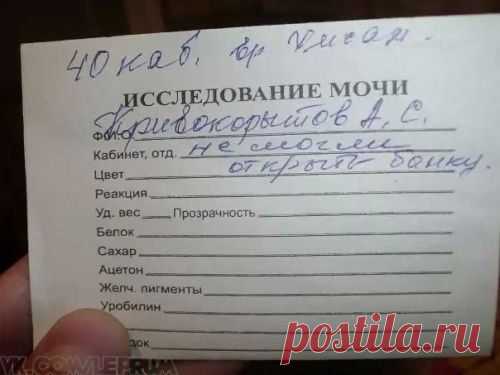 40 каб. вр
ИССЛЕДОВАНИЕ МОЧИ
Кривокорытов А. С.
Кабинет, отд. не могли
Цвет открыть банку.
Реакция
Уд. вес Прозрачность
Белок
Сахар
Ацетон
Желч. пигменты
Уробилин
postila.ru